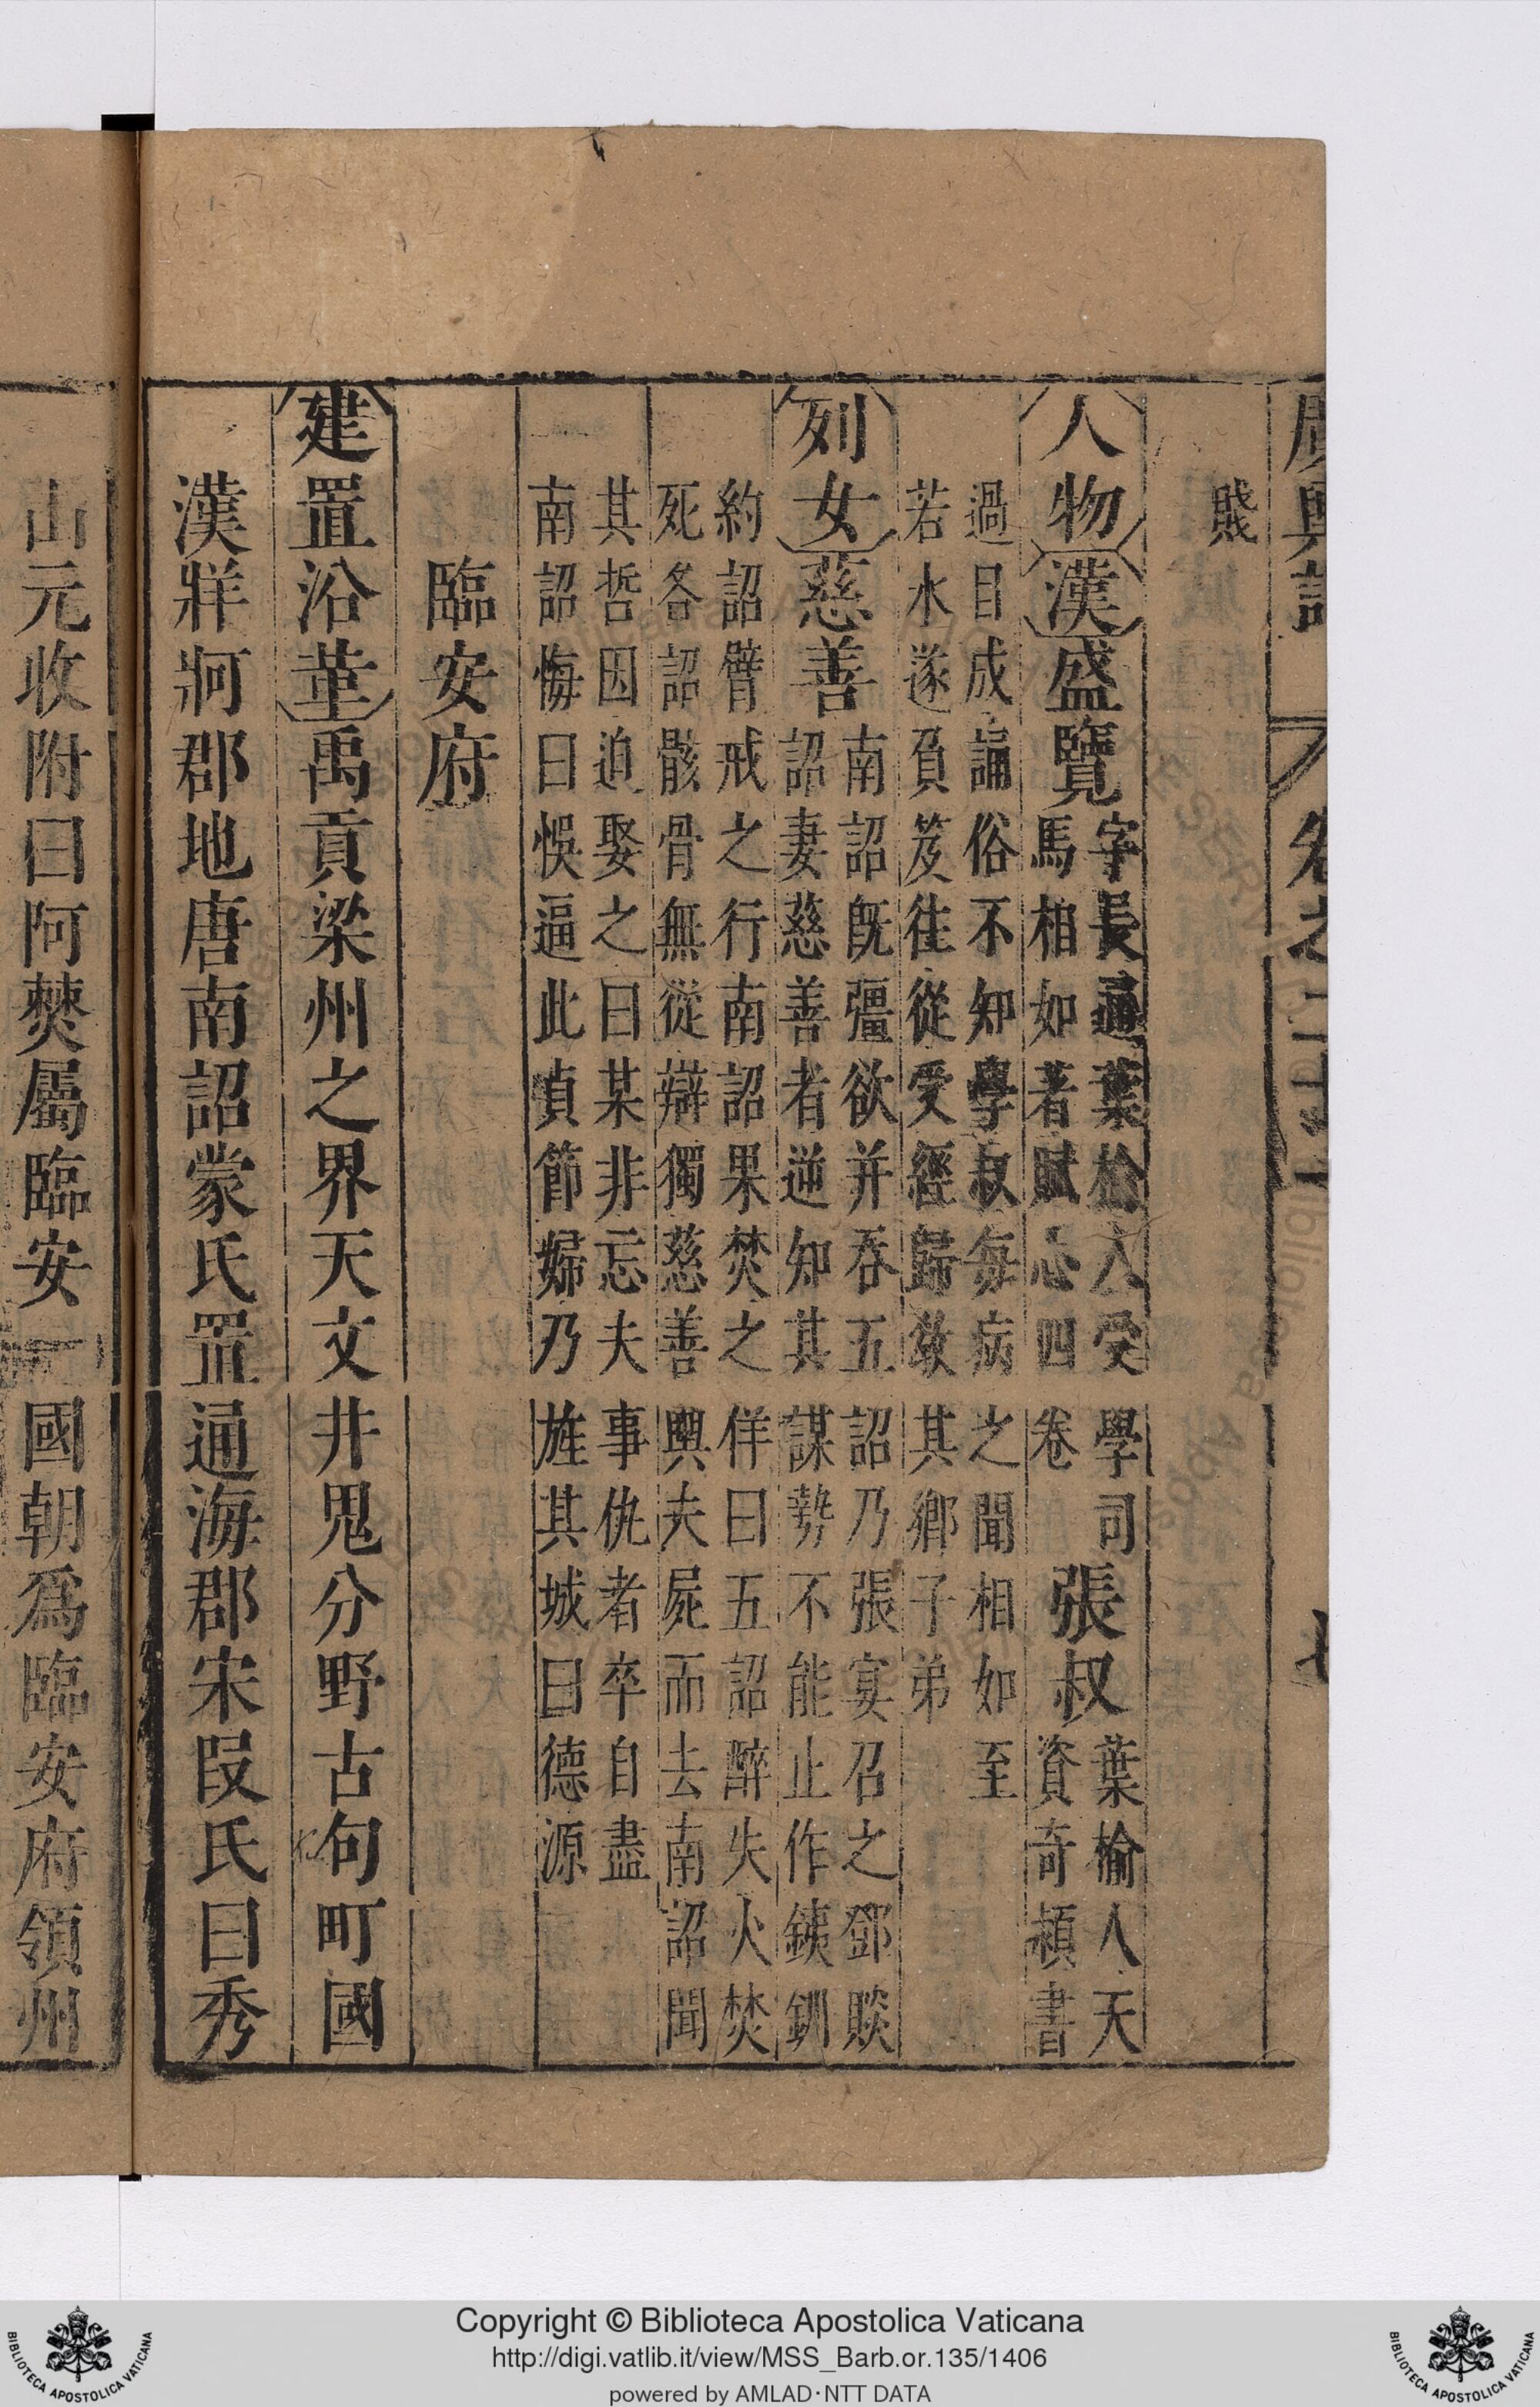 廣輿記 卷之二十一
賤
人物 漢 盛覽 字長通葉榆人受學司
馬相如著賦心四卷 張叔 葉榆人天
資奇穎書
過目成誦俗不知學叔每病之聞相如至
若水遂負笈徃從受經歸教其鄉子弟
列女 慈善 南詔既彊欲并吞五詔乃張宴召之鄧賧
詔妻慈善者逆知其謀勢不能止作鐵釧
約詔臂戒之行南詔果焚之佯曰五詔醉失火焚
死各詔骸骨無從辯獨慈善輿夫屍而去南詔聞
其哲因迫娶之曰某非忘夫事仇者卒自盡
南詔悔曰悞逼此貞節婦乃旌其城曰德源
臨安府
建置沿革 禹貢梁州之界天文井鬼分野古句町國
漢牂牁郡地唐南詔蒙氏置通海郡宋段氏曰秀
山元收附曰阿僰屬臨安 國朝爲臨安府領州
Copyright © Biblioteca Apostolica Vaticana
http://digi.vatlib.it/view/MSS_Barb.or.135/1406
powered by AMLAD·NTT DATA
BIBLIOTECA APOSTOLICA VATICANA
BIBLIOTECA APOSTOLICA VATICANA